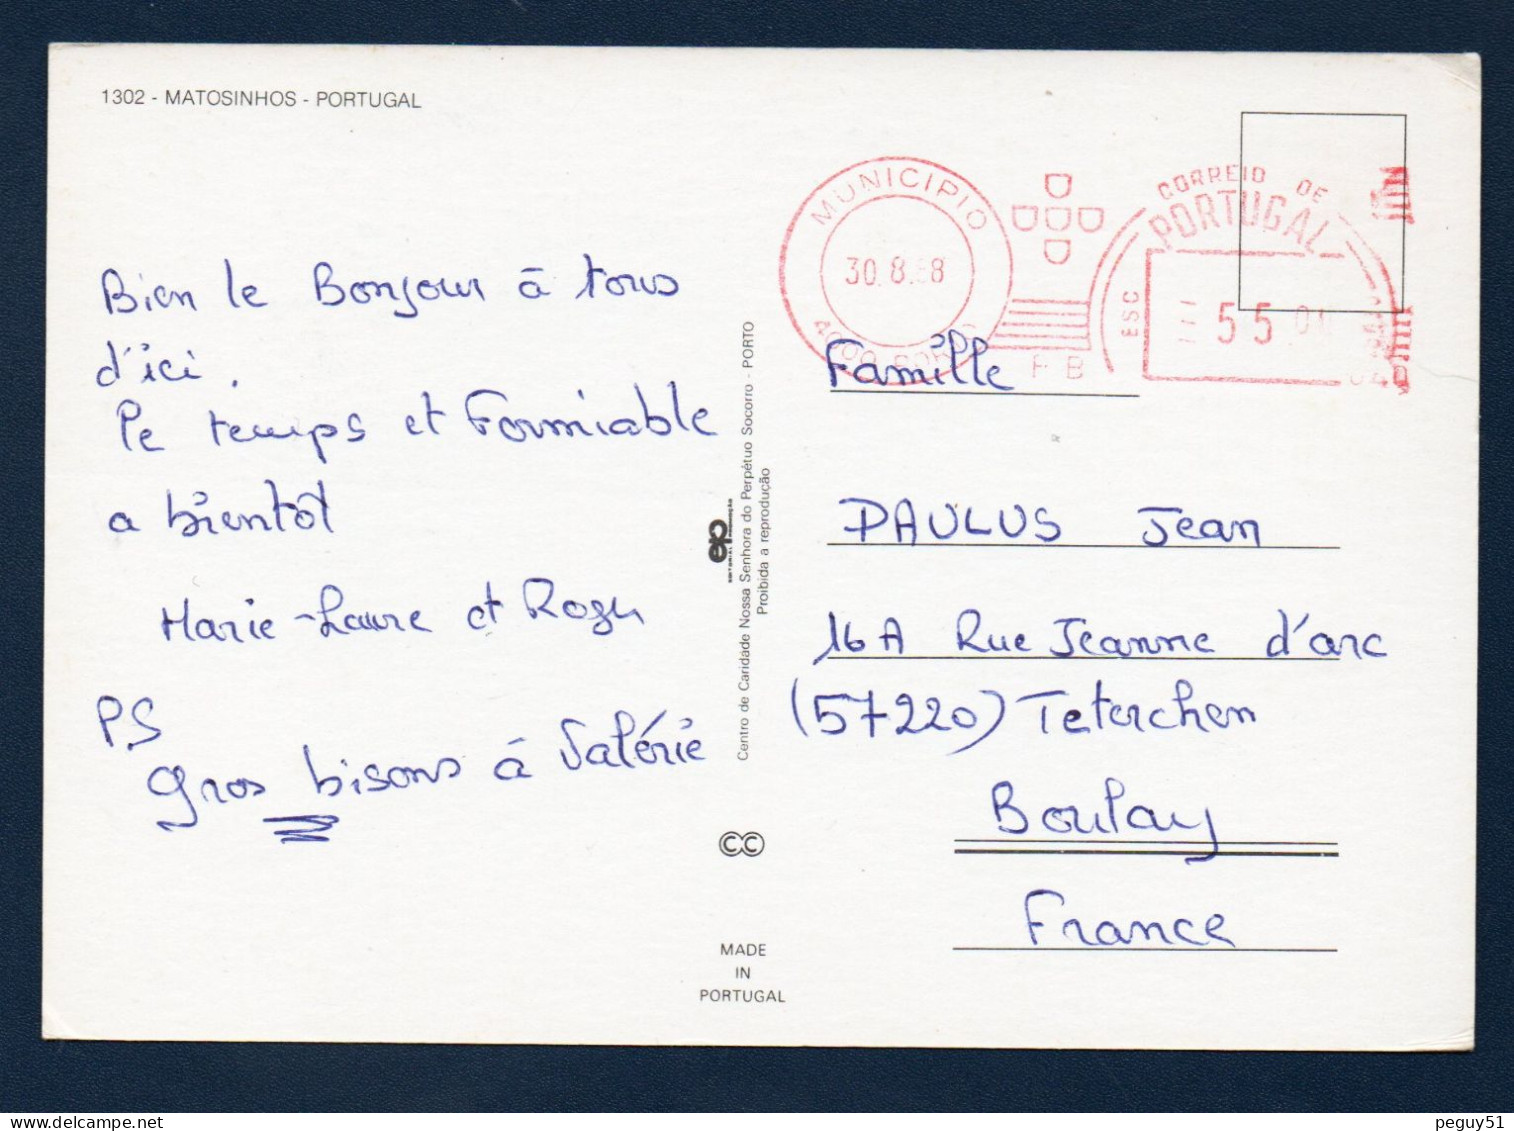 1302 - MATOSINHOS - PORTUGAL
Bien le Bonjour à tous
d'ici.
le temps et Formiable
a bientôt
Marie-Laure et Roger
PS
gros bisons à Valérie
Centro de Caridade Nossa Senhora do Perpétuo Socorro - PORTO
Proibida a reprodução
MADE
IN
PORTUGAL
MUNICIPIO
30.8.88
CORREIO DE
PORTUGAL
ESC
55
Famille
PAULUS Jean
16A Rue Jeanne d'arc
(57220) Teterchen
Boulay
France
peguy51